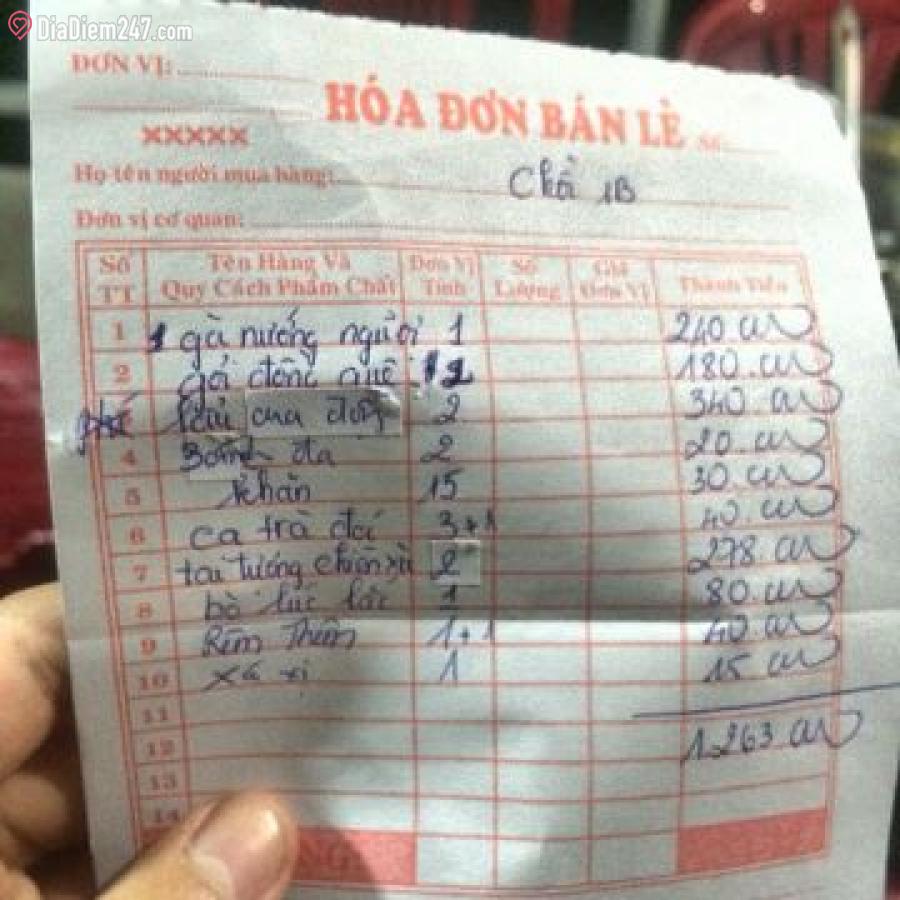 DiaDiem247.com
ĐƠN VỊ:
HÓA ĐƠN BÁN LẺ
XXXXX
Họ tên người mua hàng: Chồi 1B
Đơn vị cơ quan:
Số TT Tên Hàng Và Quy Cách Phẩm Chất Đơn Vị Tính Số Lượng Giá Đơn Vị Thành Tiền
1 1 gà nướng 1 240.000
2 gỏi đồng quê 2 180.000
lẩu cua đồng 2 340.000
4 Bánh đa 2 20.000
5 khăn 15 30.000
6 ca trà đá 3+1 40.000
7 tai tượng chiên xù 2 278.000
8 bò lúc lắc 1 80.000
9 Thêm 1+1 40.000
10 xá xị 1 15.000
11
12 1.263.000
13
14